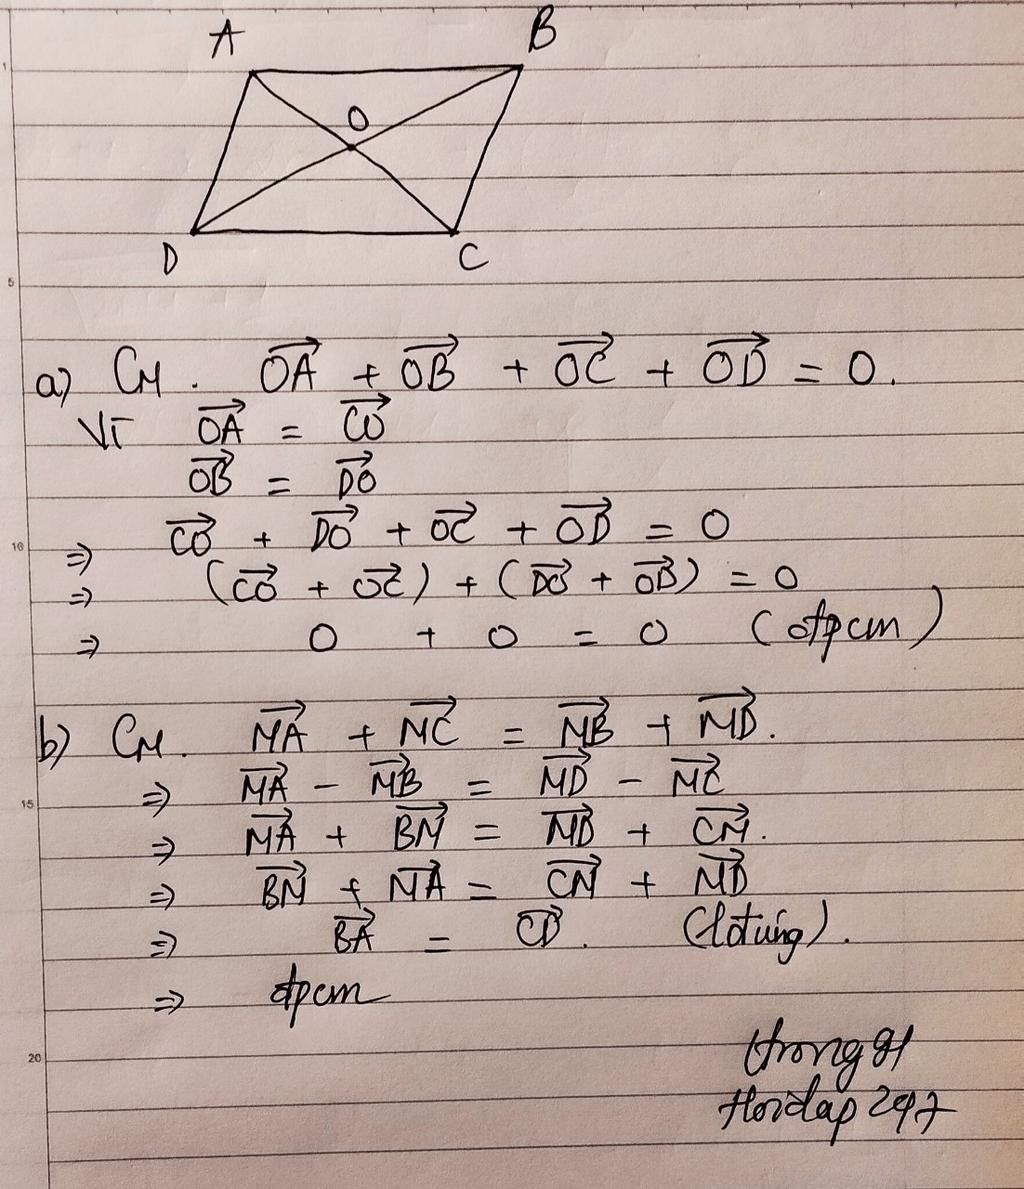 A B
O
D C
a) CM. \overrightarrow{OA} + \overrightarrow{OB} + \overrightarrow{OC} + \overrightarrow{OD} = 0.
Vì \overrightarrow{OA} = \overrightarrow{CO}
\overrightarrow{OB} = \overrightarrow{DO}
⇒ \overrightarrow{CO} + \overrightarrow{DO} + \overrightarrow{OC} + \overrightarrow{OD} = 0
⇒ (\overrightarrow{CO} + \overrightarrow{OC}) + (\overrightarrow{DO} + \overrightarrow{OD}) = 0
⇒ 0 + 0 = 0 (đpcm)
b) CM. \overrightarrow{MA} + \overrightarrow{MC} = \overrightarrow{MB} + \overrightarrow{MD}.
⇒ \overrightarrow{MA} - \overrightarrow{MB} = \overrightarrow{MD} - \overrightarrow{MC}
⇒ \overrightarrow{MA} + \overrightarrow{BM} = \overrightarrow{MD} + \overrightarrow{CM}.
⇒ \overrightarrow{BM} + \overrightarrow{MA} = \overrightarrow{CM} + \overrightarrow{MD}
⇒ \overrightarrow{BA} = \overrightarrow{CD}. (Lđúng).
⇒ đpcm
Hoidap247
1
5
10
15
20